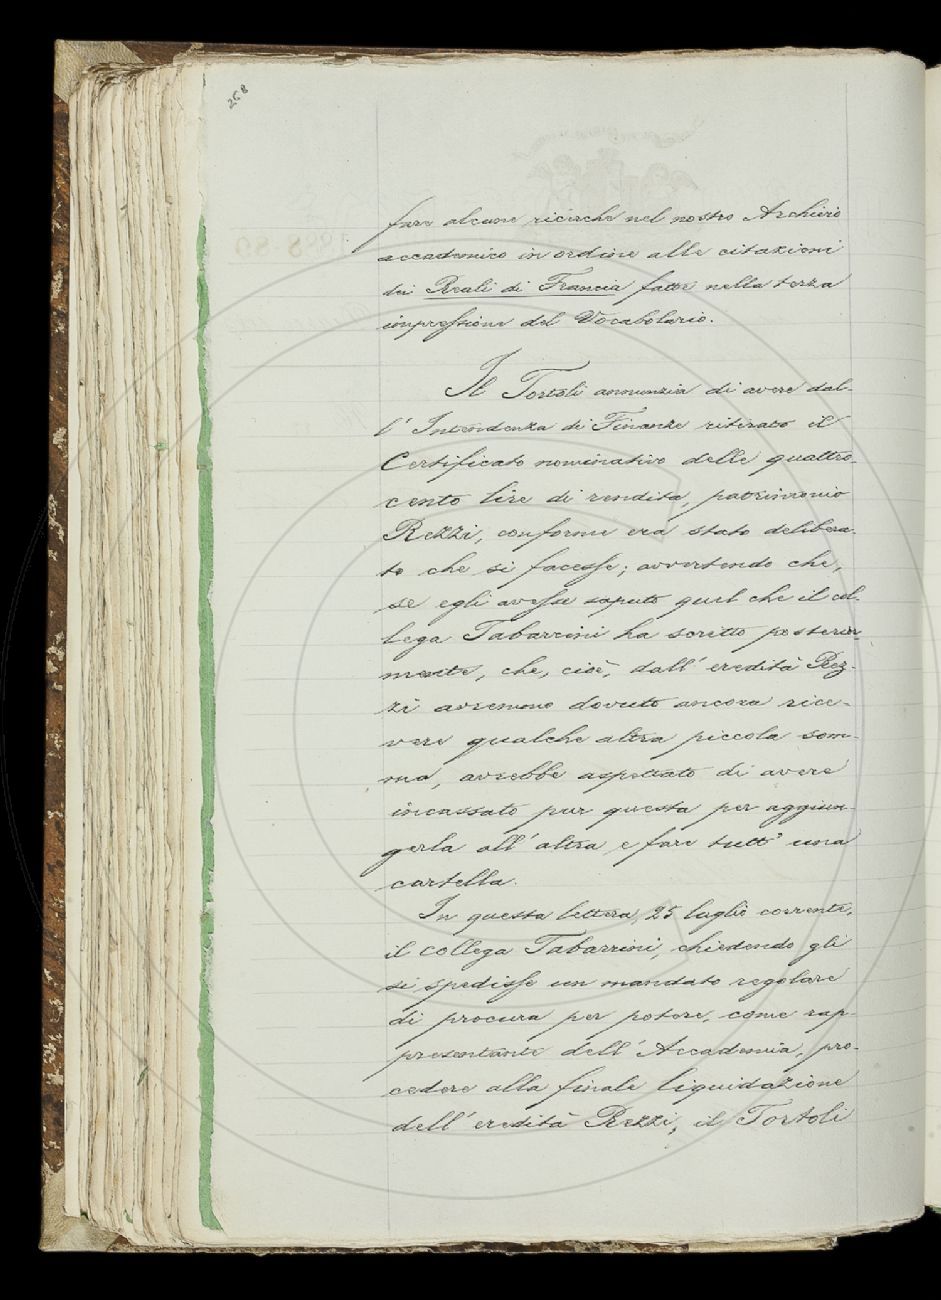 268
fare alcune ricerche nel nostro Archivio
accademico in ordine alle citazioni
dei Reali di Francia fatte nella terza
impressione del Vocabolario.
Il Tortoli annunzia di avere dal-
l' Intendenza di Finanze ritirato il
Certificato nominativo delle quattro-
cento lire di rendita, patrimonio
Rezzi, conforme era stato delibera-
to che si facesse; avvertendo che,
se egli avesse saputo quel che il col-
lega Tabarrini ha scritto posterior-
mente, che, cioè, dall' eredità Rez-
zi avremmo dovuto ancora rice-
vere qualche altra piccola som-
ma, avrebbe aspettato di avere
incassato pur questa per aggiun-
gerla all' altra e fare tutt' una
cartella.
In questa lettera, 25 luglio corrente,
il collega Tabarrini, chiedendo gli
si spedisse un mandato regolare
di procura per potere, come rap-
presentante dell' Accademia, pro-
cedere alla finale liquidazione
dell' eredità Rezzi, il Tortoli